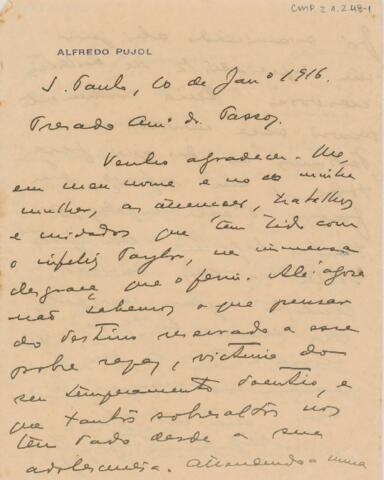 CMP 2.1.2.48-1
ALFREDO PUJOL
S. Paulo, 10 de Jan.º 1916.
Presado Am.º dr. Passos,
Venho agradecer-lhe,
em meu nome e no de minha
mulher, as attenções, trabalhos
e cuidados que tem tido com
o infeliz Taylor, na immensa
desgraça que o feriu. Até agora
não sabemos o que pensar
do destino reservado a esse
pobre rapaz, victima do
seu temperamento doentio, e
que tantos sobresaltos nos
tem dado desde a sua
adolescencia. Attendendo a uma